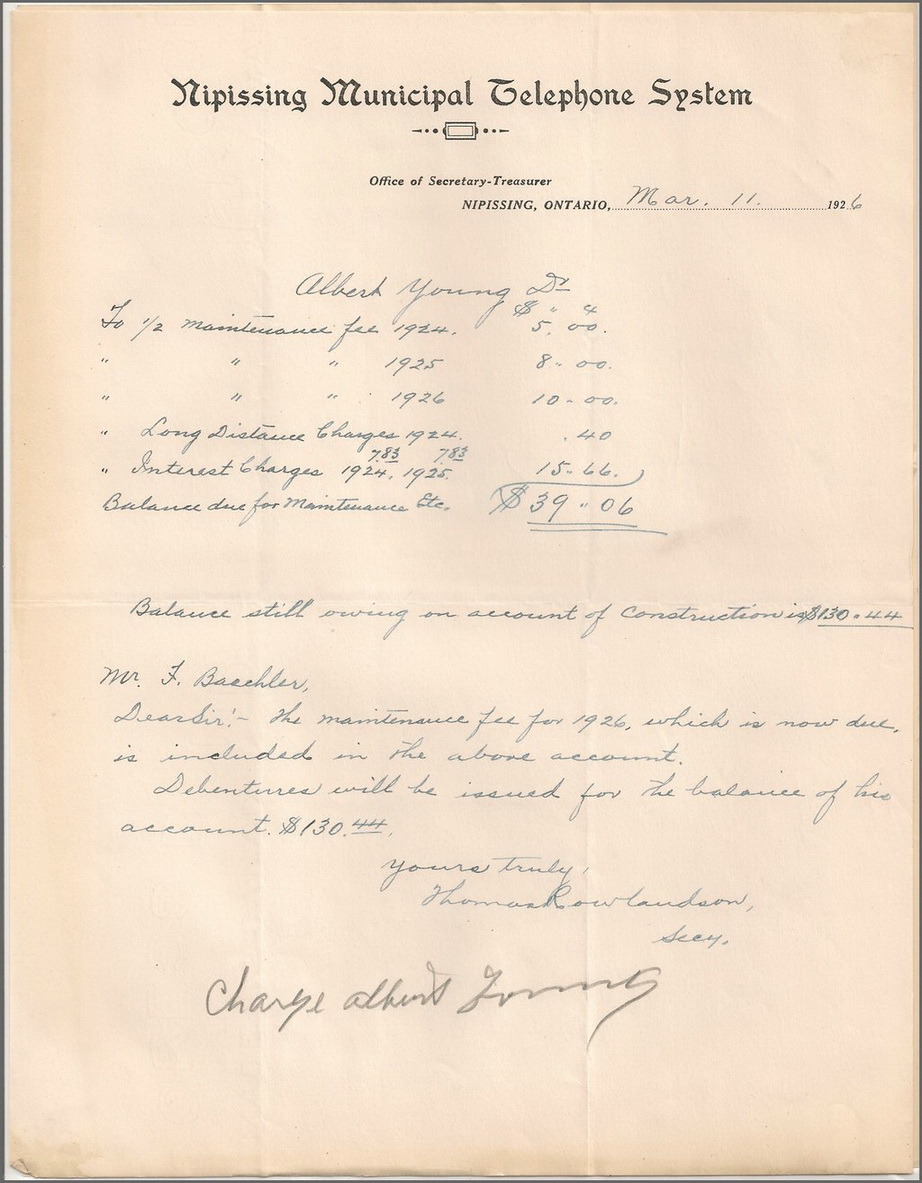 Nipissing Municipal Telephone System
Office of Secretary-Treasurer
NIPISSING, ONTARIO, Mar. 11. 1926
Albert Young Dr
$ " ¢
To 1/2 Maintenance fee 1924. 5.00.
" " " 1925 8.. 00.
" " " 1926 10 - 00.
" Long Distance Charges 1924. .40
7.83 7.83
" Interest Charges 1924, 1925. 15-66.
Balance due for Maintenance Etc. $39 " 06
Balance still owing on account of Construction is $130.44
Mr. F. Baechler,
Dear Sir:- The maintenance fee for 1926, which is now due,
is included in the above account.
Debentures will be issued for the balance of his
account. $130.44.
Yours truly,
Thomas Rowlandson,
Secy.
Charge Albert Young